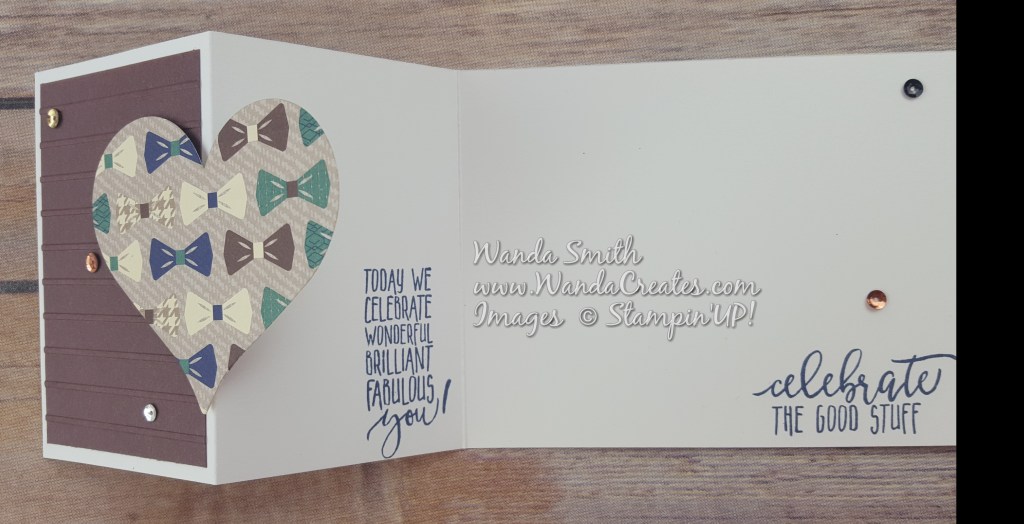 TODAY WE
CELEBRATE
WONDERFUL
BRILLIANT
FABULOUS
you!
Wanda Smith
www.WandaCreates.com
Images © Stampin'UP!
celebrate
THE GOOD STUFF